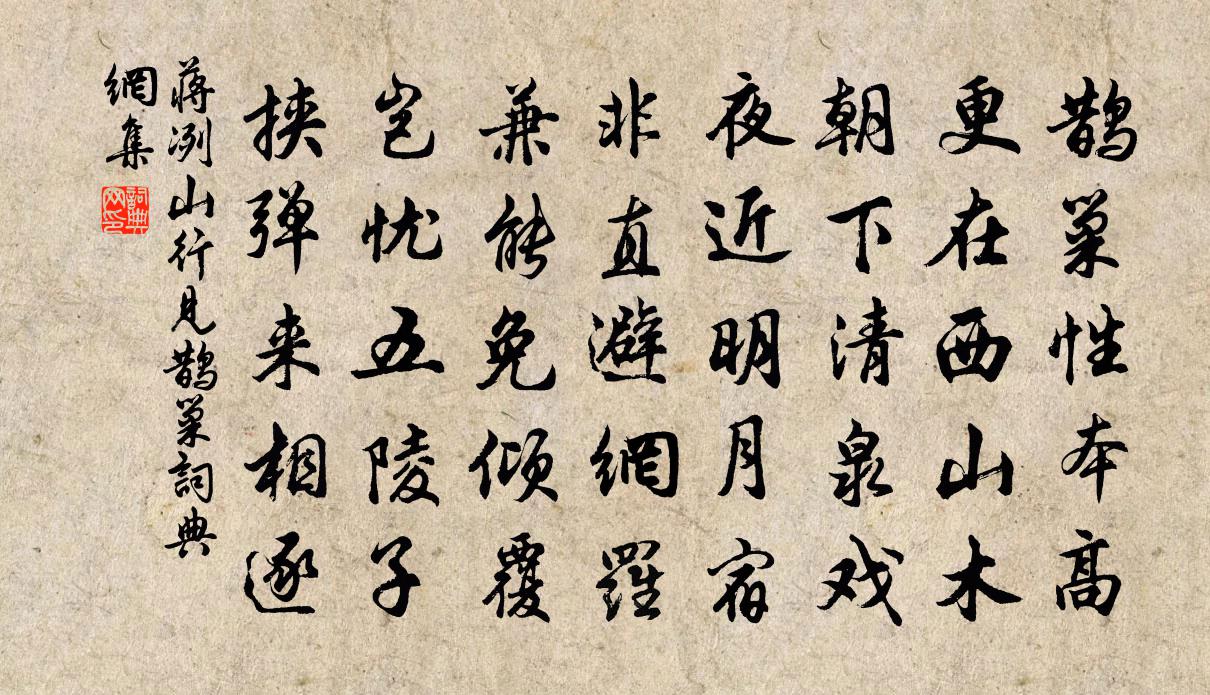 鹊巢性本高
更在西山木
朝下清泉戏
夜近明月宿
非直避網羅
兼能免傾覆
岂忧五陵子
挟弹来相逐
蒋冽山行見鹊巢詞典
網集
詞典
网印